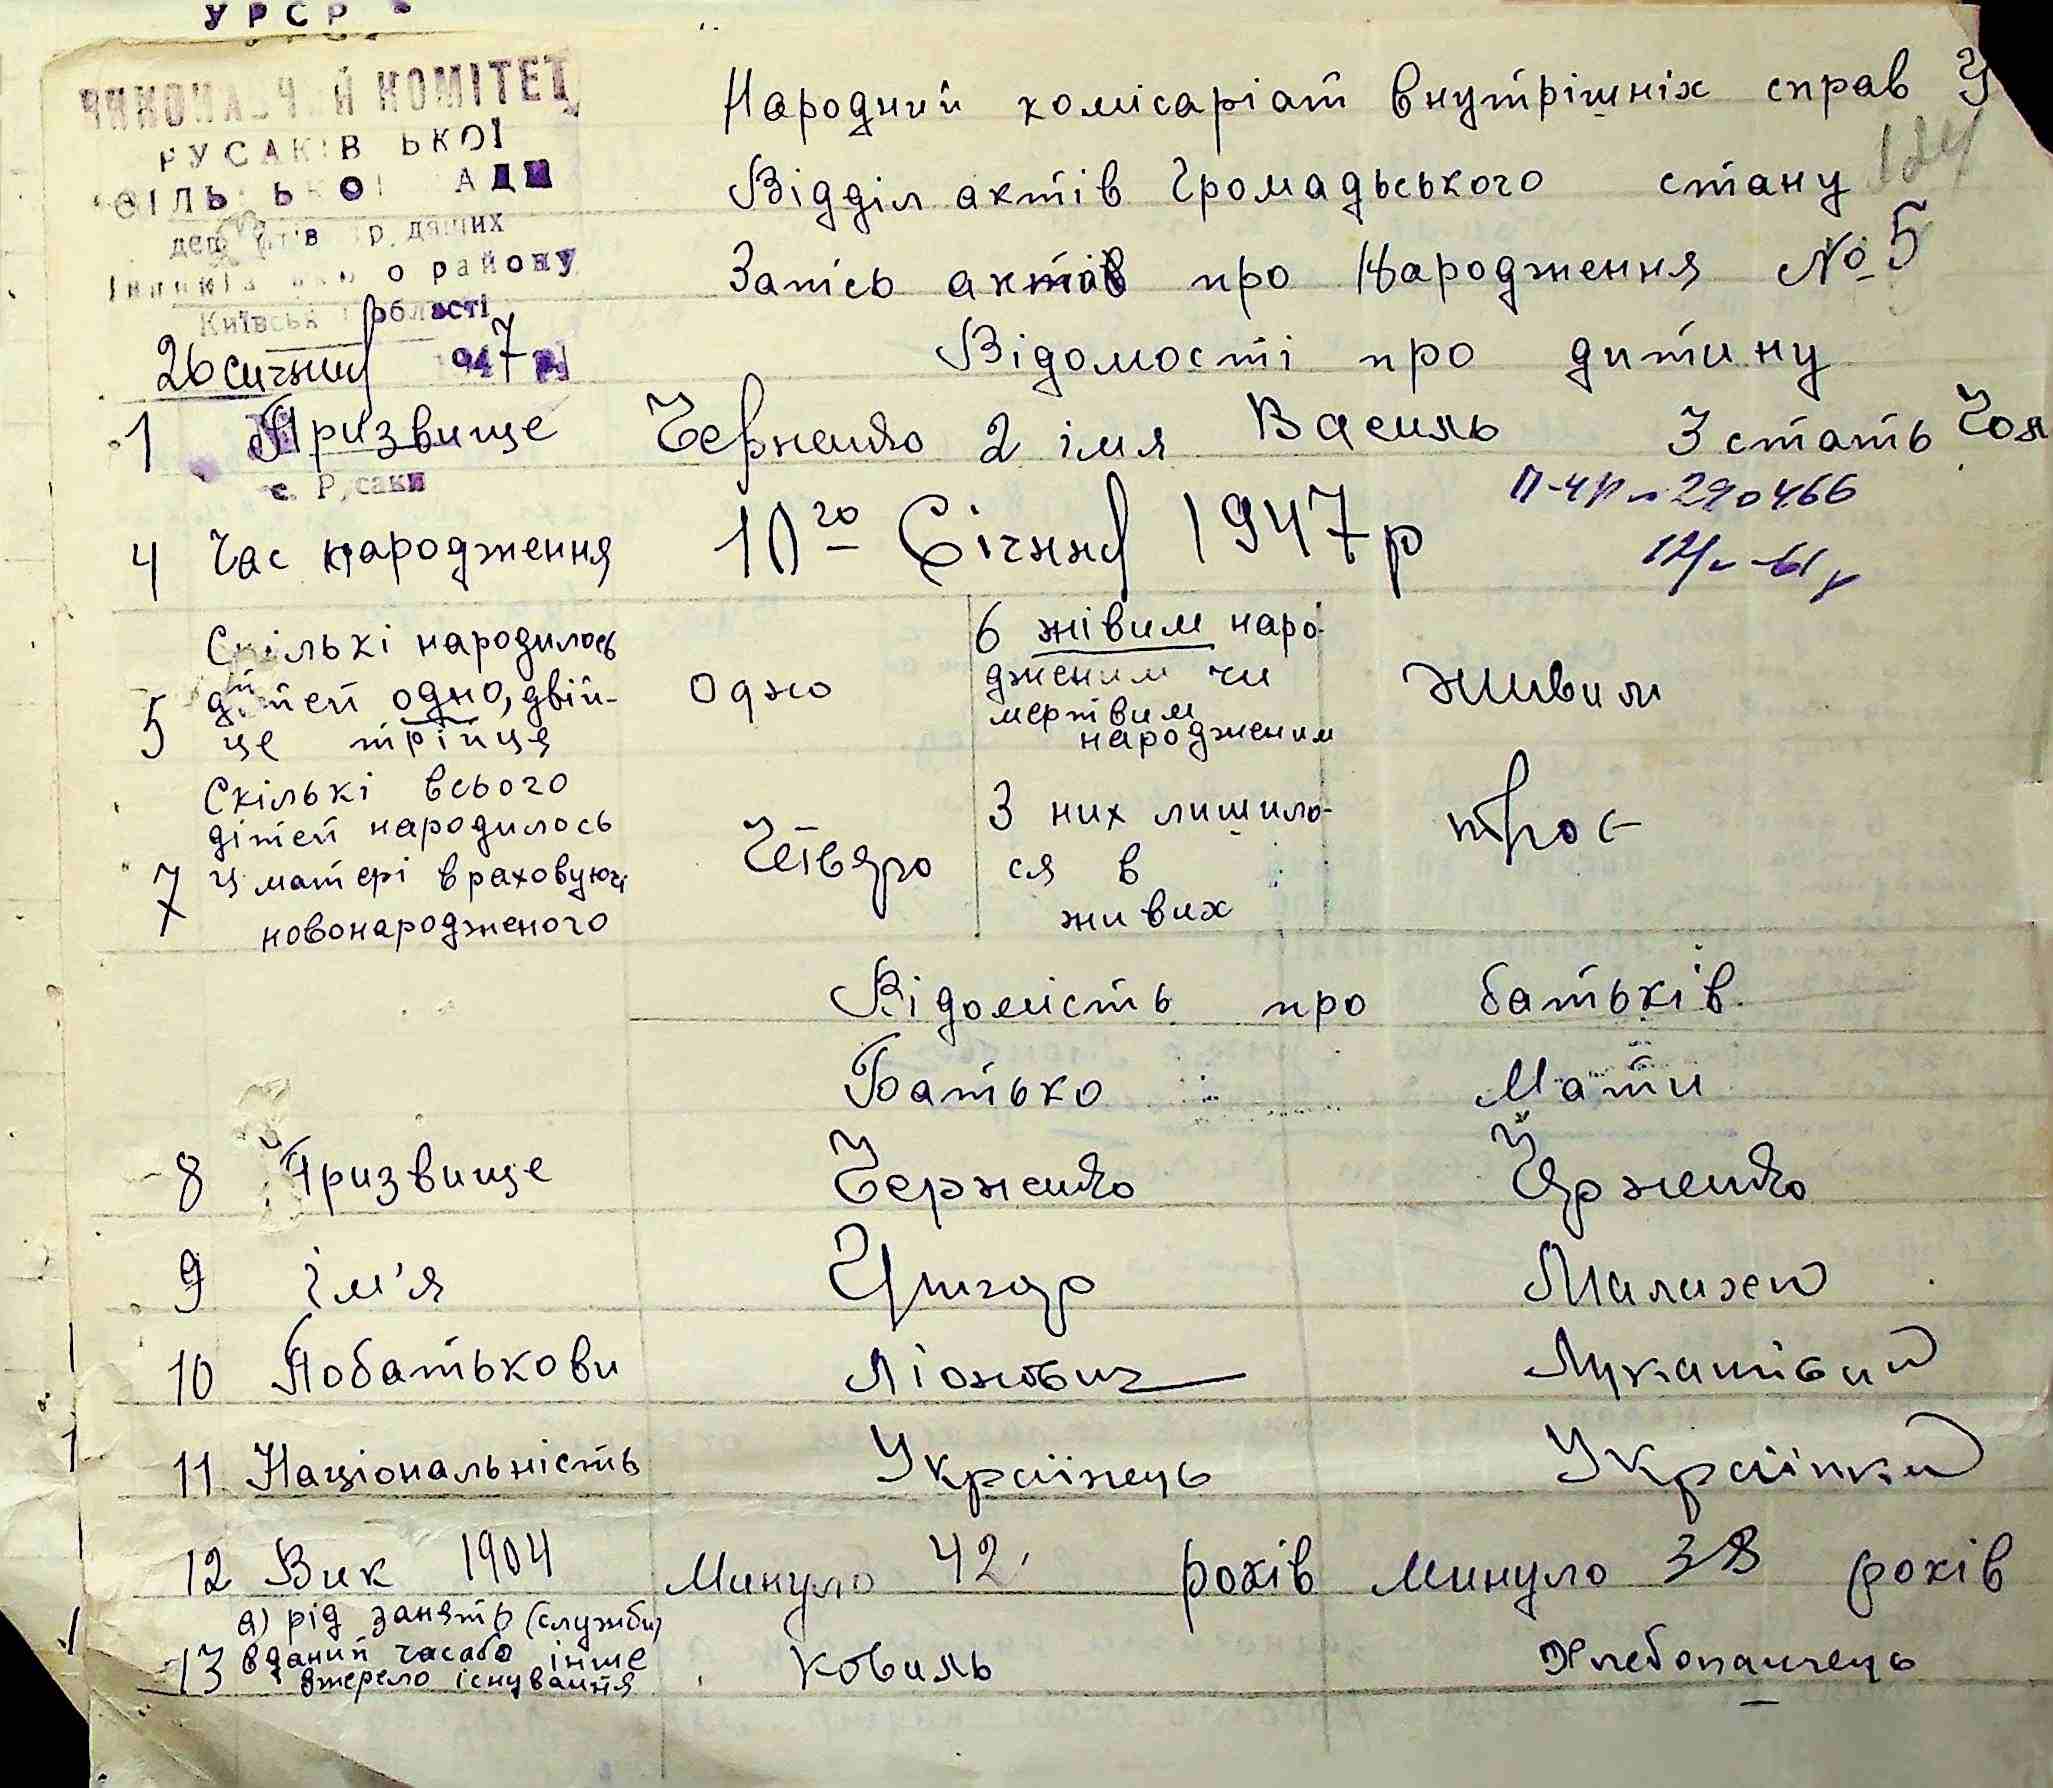 УРСР
ВИКОНАВЧИЙ КОМІТЕТ
РУСАКІВСЬКОЇ
СІЛЬСЬКОЇ РАДИ
депутатів трудящих
Іванківського району
Київської області
26 Січня 1947 р
с. Русаки
Народний комісаріат внутрішніх справ У
124
Відділ актів громадьського стану
Запісь актів про народження № 5
Відомості про дитину
1 Призвище Черненко 2 імя Василь 3 стать Чол
290466
4 Час народження 10го Січня 1947 р
5 Скількі народилось дітей одно, двій-
це трійця
одно
6 жівим наро-
дженим чи
мертвим
народженим
живим
7 Скількі всього
дітей народилось
у матері враховуючі
новонародженого
Четверо
З них лишило-
ся в
живих
троє
Відомість про батьків
Батько Мати
8 Призвище Черненко Черненко
9 Ім'я Григор Маланея
10 Побатькови Ліонович Лукашівна
11 Національність Українець Українка
12 Вик 1904 Минуло 42 років минуло 38 років
13 а) рід занять (служби)
в даний час або інше
джерело існування
коваль Хлебопашець